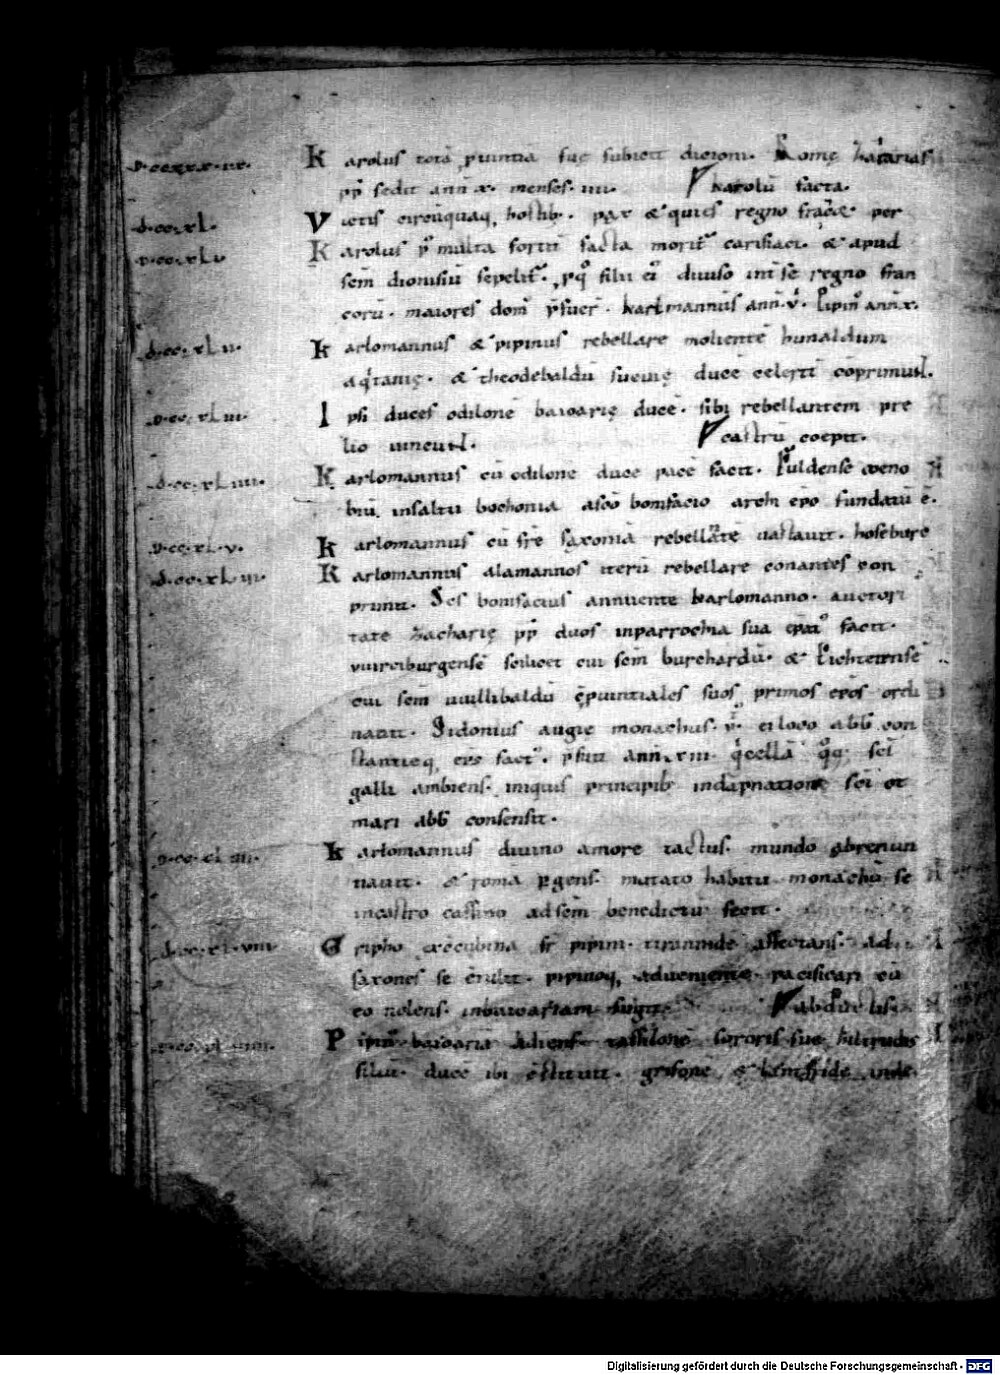 .d.cc.xxx.ix. Karolus totā ꝓuintiā suę subiecit dicioni. Romę Zaharias
pp̄ sedit ann̄ .x. menses. iii. karolū facta.
.d.cc.xl. Victis circūquaq; hostib;. pax & quies regno francoꝝ per
.d.cc.xli Karolus p̄ multa fortit̄ facta morit̄ carisiaci. & apud
sc̄m dionisiū sepelit̄. filii ei diuiso int̄ se regno fran
corū. maiores dom̄ p̄fuer̄. karlmannus ann̄.v. Pipin̄ ann̄.x.
.d.cc.xl.ii. Karlomannus & pipinus rebellare moliente hunaldum
aq̄tanię. & theodebaldū sueuię ducē celerit̄ cōprimunt.
.d.cc.xl.iii. Ipsi duces odilonē baioarię ducē. sibi rebellantem pre
lio uincunt. castrū coepit.
.d.cc.xl.iiii. Karlomannus cū odilone duce pacē facit. Fuldense coeno
biū. in saltu bochonia a sc̄o bonifacio arch ep̄o fundatū ē.
.d.cc.xl.v. Karlomannus cū fr̄e saxoniā rebellātē uastauit. hoseburc
.d.cc.xl.vi. Karlomannus alamannos iterū rebellare conantes con
primit. Sc̄s bonifacius annuente karlomanno. auctori
tate Zacharię pp̄ duos in parrochia sua facit.
wirciburgensē scilicet cui sc̄m burchardū. & Eichtetensē
cui sc̄m willibaldū cōprouintiales suos primos ep̄os ordi
nauit. Sidonius augie monachus. & ei loco abb̄ con
stantieq; ep̄s fact̄. p̄fuit ann̄. xiii. cellā quoq; sc̄i
galli ambiens. iniquis principib; indignatione sc̄i ot
mari abb̄ consensit.
Karlomannus diuino amore tactus. mundo abrenun
tiauit. & roma ꝑgens. mutato habitu monachū se
in castro cassino ad sc̄m benedictū fecit.
.d.cc.xl.viii. Gripho ex cōcubina fr̄ pipini. tirannidē affectans. ad
saxones se cōtulit. pipinoq; adueniente pacificari cū
eo nolens. in baioariam fugit.
Pipin̄ baioariā adiens. tassilonē sororis suę hiltrudis
filiū. ducē ibi cōstituit. grifonē & lantfridē inde
Digitalisierung gefördert durch die Deutsche Forschungsgemeinschaft - DFG